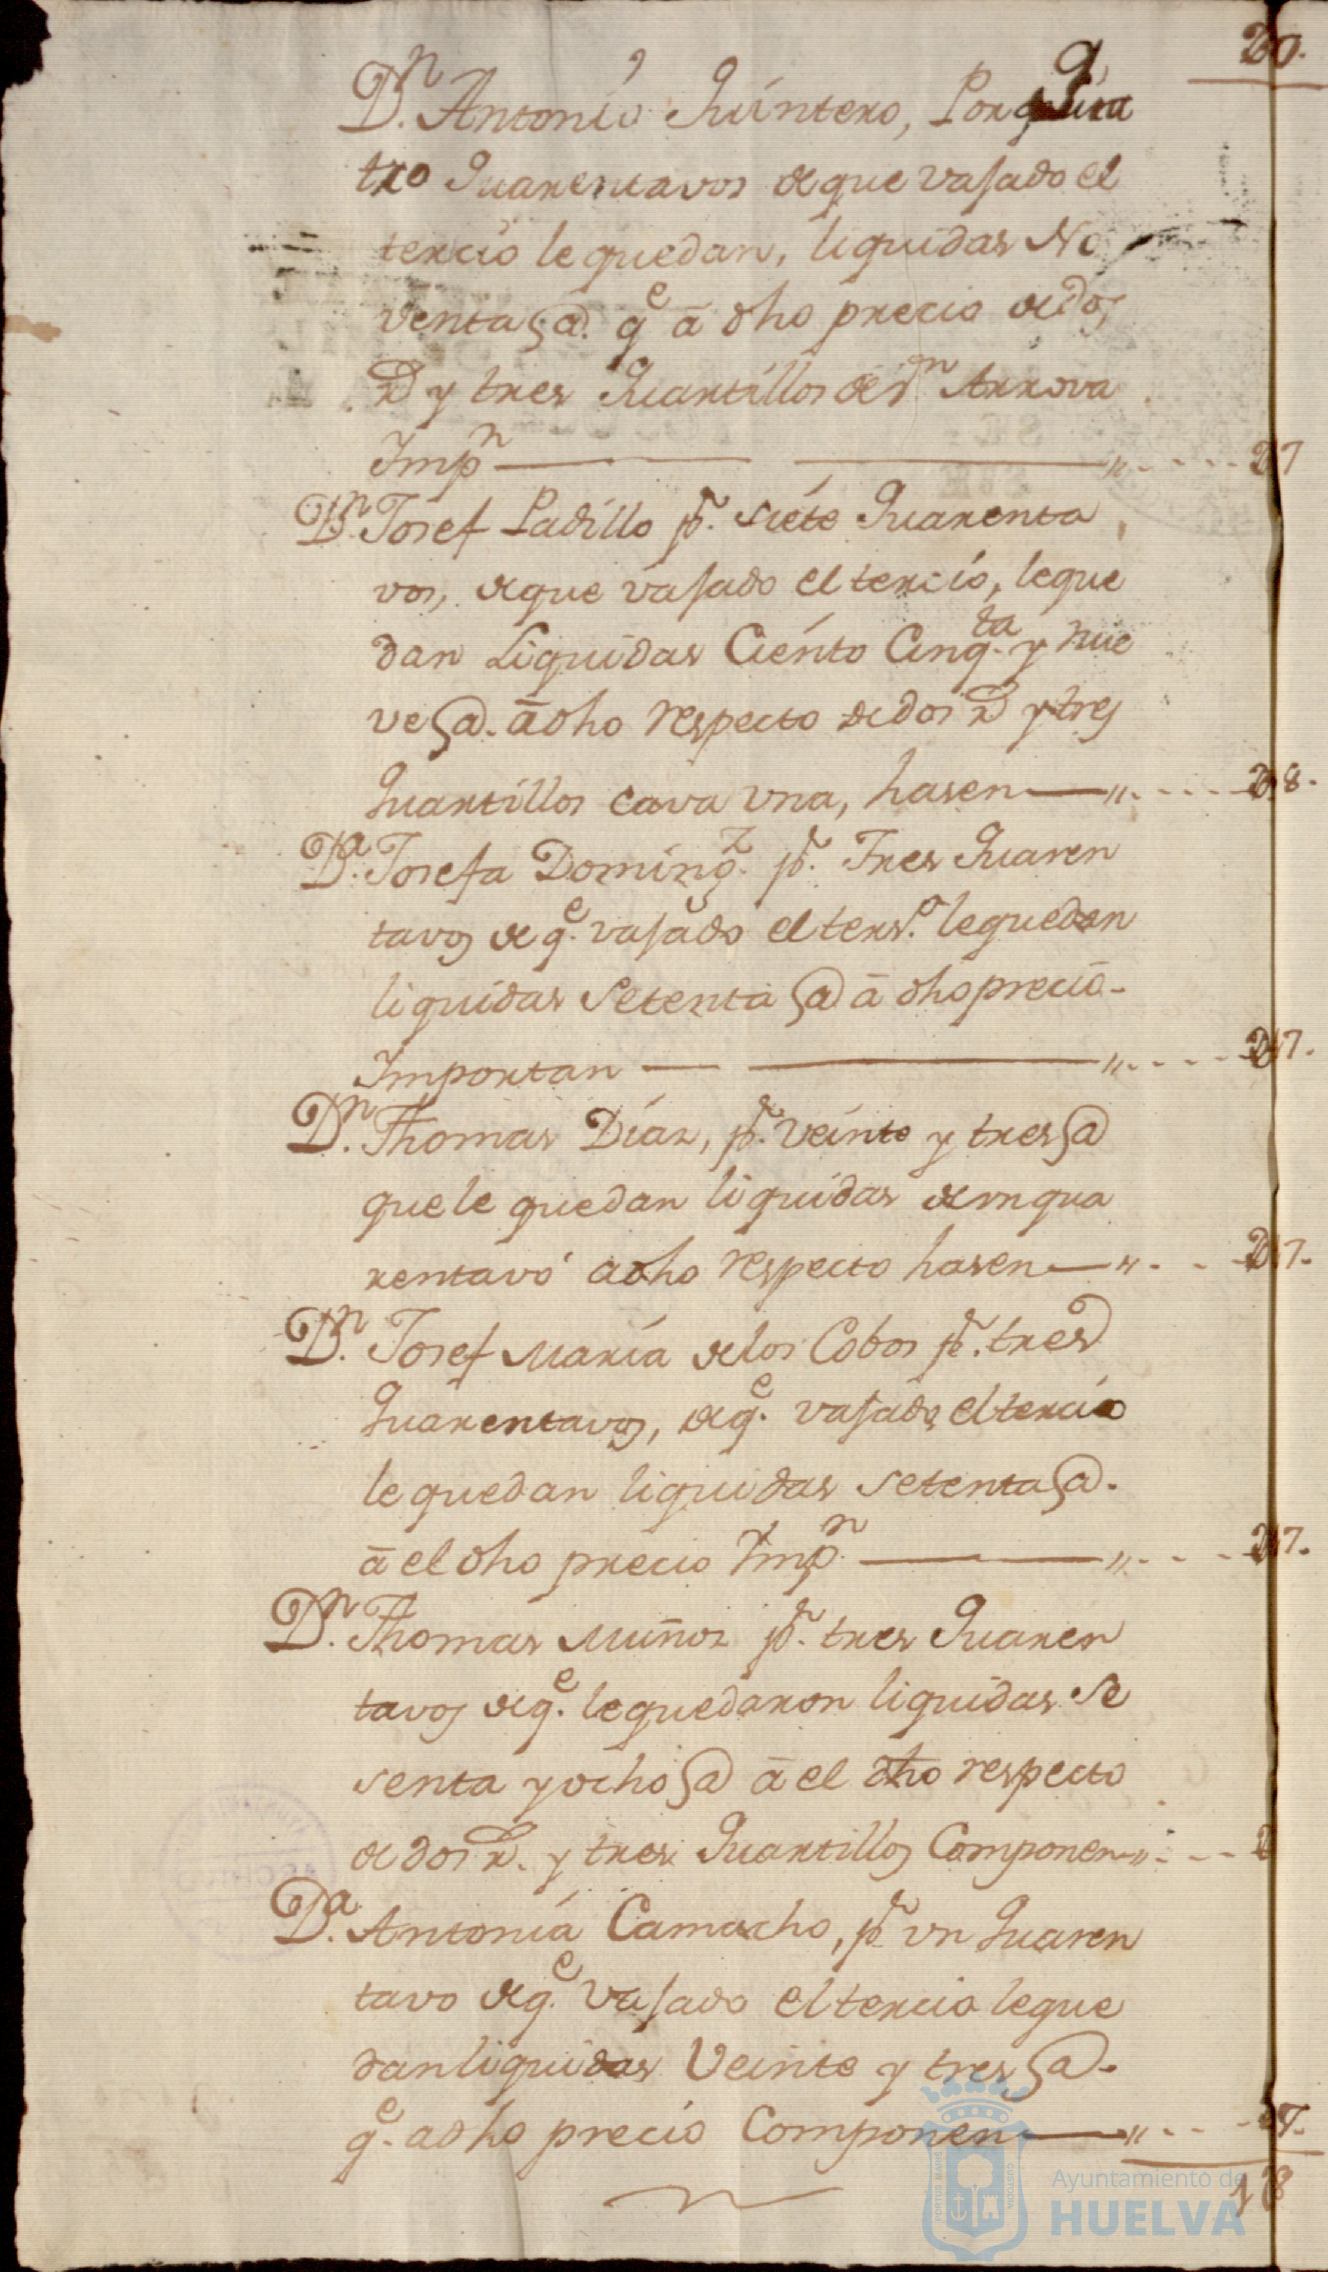 20.
Dn. Antonio Quintero, Por qua
tro Quarentavos de que vajado el
tercio le quedan, liquidas No
venta @. qe. â dho precio de dos
Rs y tres Quartillos de Vn. Arrova
Impn
Dn. Josef Padillo pr. siete Quarenta
vos, de que vajado el tercio, le que
dan Liquidas Ciento Cinqta. y nue
ve @. â dho respecto de dos Rs y tres
Quartillos cava vna, hasen
8.
Da. Josefa Doming.z pr. Tres Quaren
tavos de qe. vajado el terso. le quedan
liquidas Setenta @ â dho precio.
Importan
7.
Dn. Thomas Diaz, pr. veinte y tres @
que le quedan liquidas de vn qua
rentavo adho respecto hasen
7.
Dn. Josef Maria de los Cobos pr. tres
Quarentavos, de qe. vajado el tercio
le quedan liquidas setenta @.
â el dho precio Impn.
7.
Dn. Thomas Muñoz pr. tres Quaren
tavos de qe. le quedaron liquidas Se
senta y ocho @ â el dho respecto
de dos Rs. y tres Quartillos Componen
Da. Antonia Camacho, pr vn Quaren
tavo de qe. vajado el tercio le que
dan liquidas Veinte y tres @.
qe. adho precio Componen
Ayuntamiento de
HUELVA